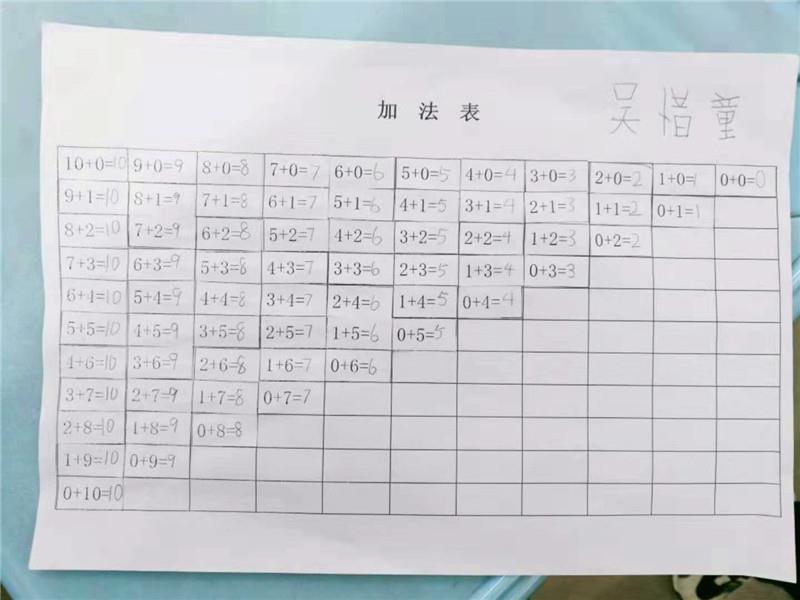 加法表
吴惜童
10+0=10 9+0=9 8+0=8 7+0=7 6+0=6 5+0=5 4+0=4 3+0=3 2+0=2 1+0=1 0+0=0
9+1=10 8+1=9 7+1=8 6+1=7 5+1=6 4+1=5 3+1=4 2+1=3 1+1=2 0+1=1
8+2=10 7+2=9 6+2=8 5+2=7 4+2=6 3+2=5 2+2=4 1+2=3 0+2=2
7+3=10 6+3=9 5+3=8 4+3=7 3+3=6 2+3=5 1+3=4 0+3=3
6+4=10 5+4=9 4+4=8 3+4=7 2+4=6 1+4=5 0+4=4
5+5=10 4+5=9 3+5=8 2+5=7 1+5=6 0+5=5
4+6=10 3+6=9 2+6=8 1+6=7 0+6=6
3+7=10 2+7=9 1+7=8 0+7=7
2+8=10 1+8=9 0+8=8
1+9=10 0+9=9
0+10=10